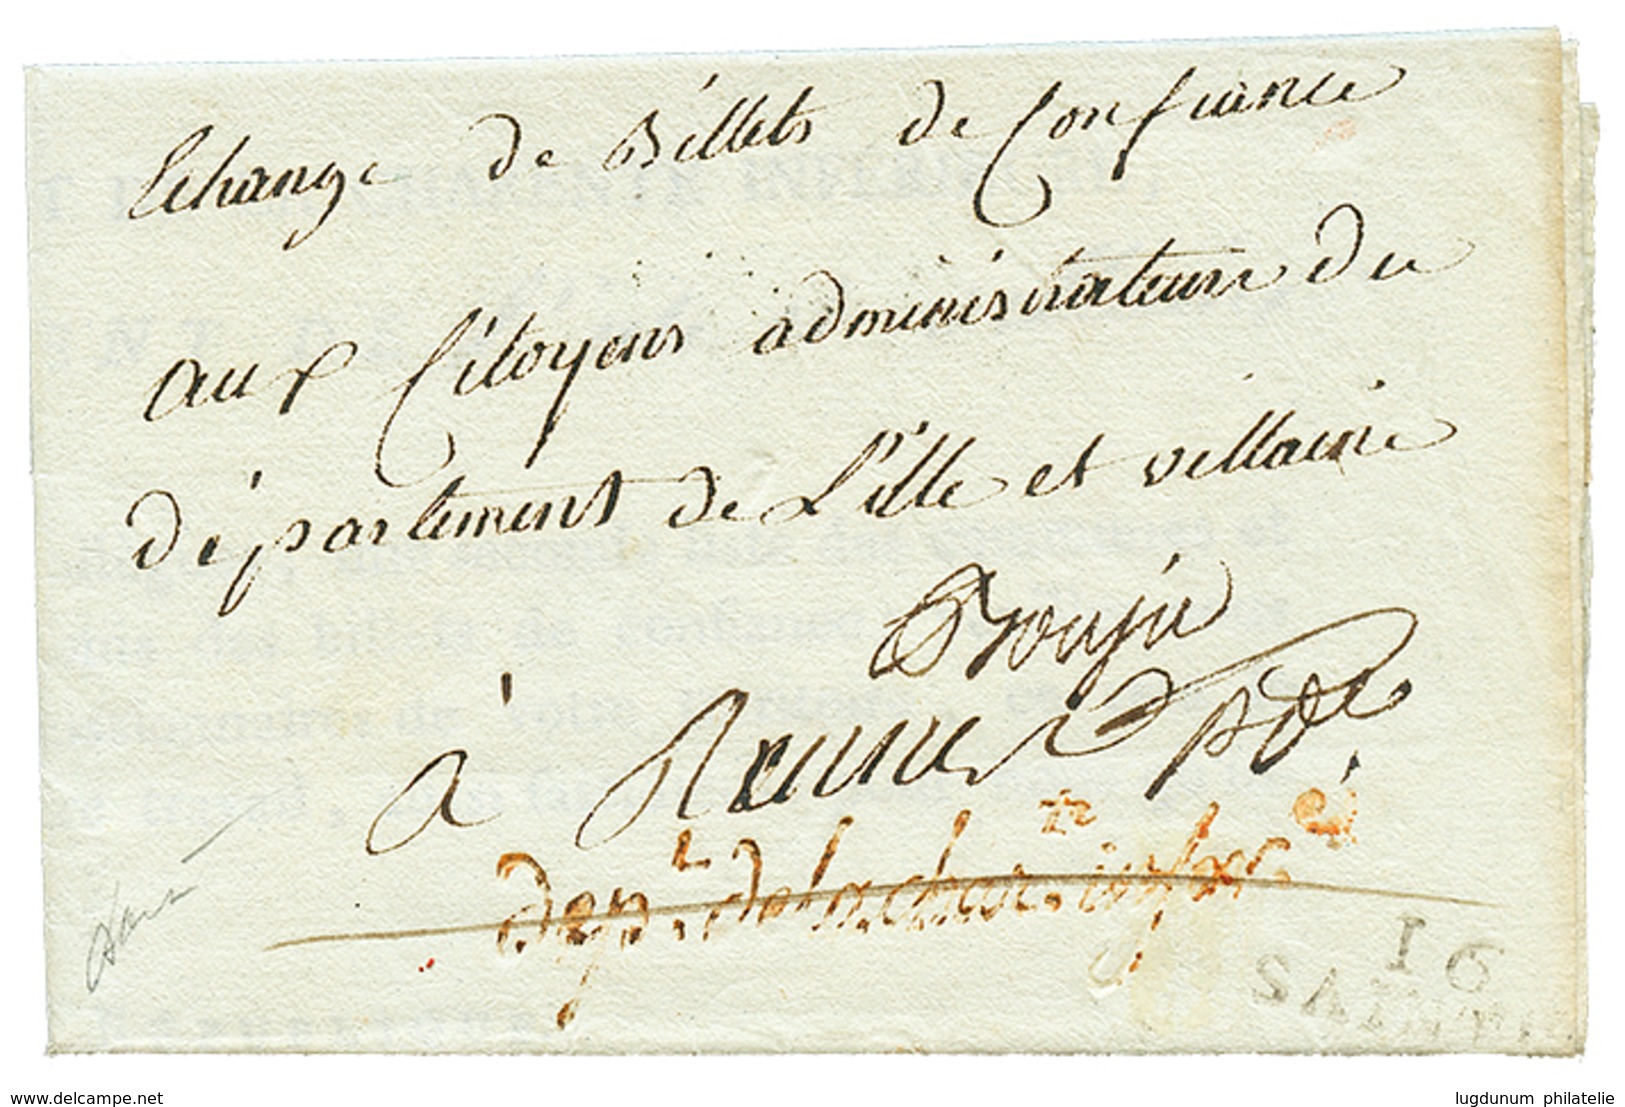 Echange de Billets de Confiance
aux Citoyens administrateurs du
département de l'ille et villaine
Bouju
à Rennes
dep.t de la char.te infer.e
16
SAINTES
www.delcampe.net
lugdunum philatelie